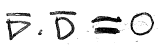 D̅ . D̅ = 0